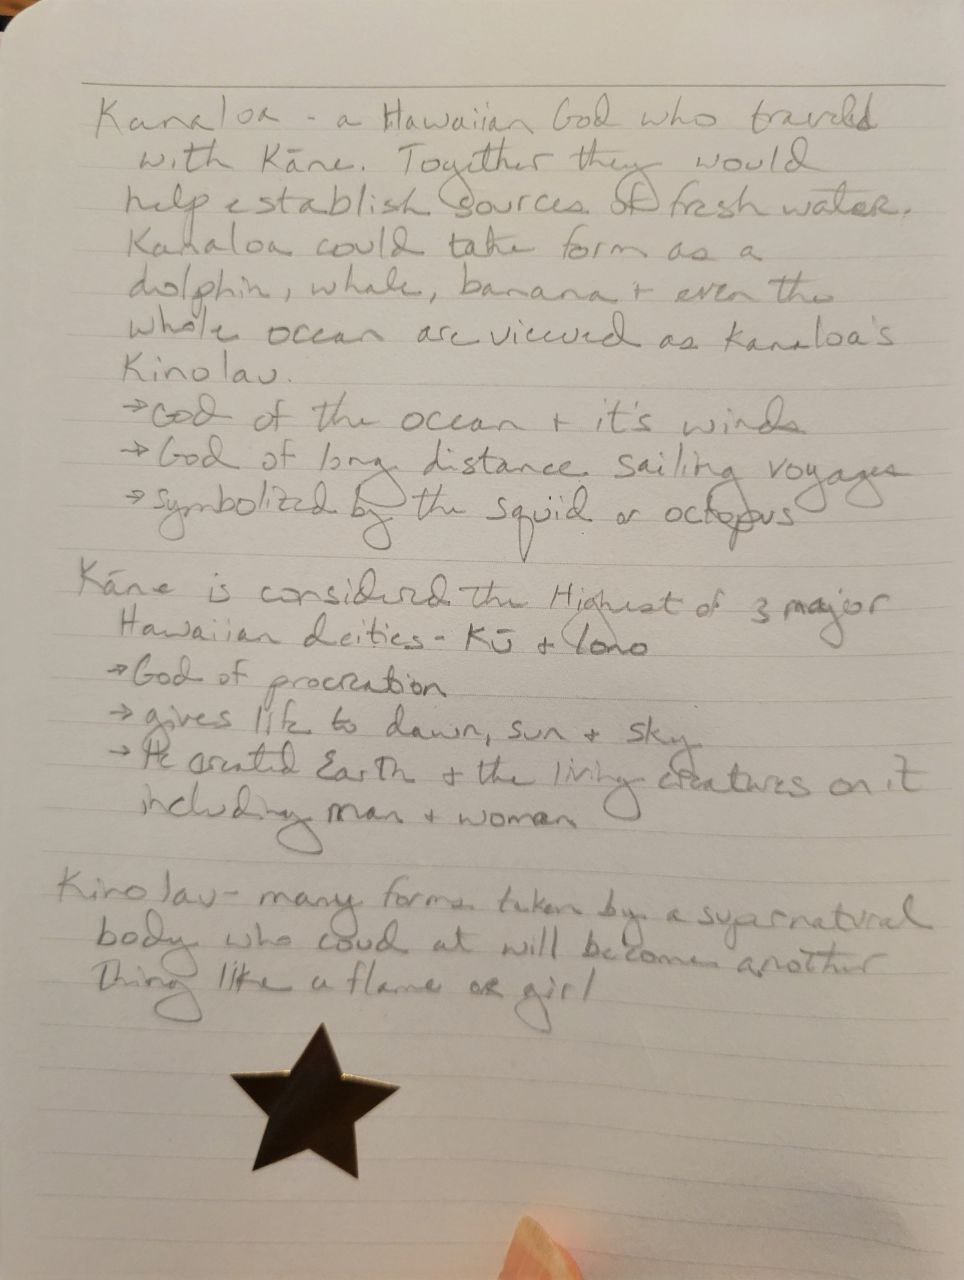 Kanaloa - a Hawaiian God who traveled
with Kāne. Together they would
help establish sources of fresh water.
Kanaloa could take form as a
dolphin, whale, banana + even the
whole ocean are viewed as Kanaloa's
Kinolau.
→God of the ocean + it's winds
→God of long distance sailing voyages
→symbolized by the squid or octopus
Kāne is considered the Highest of 3 major
Hawaiian deities - Kū + lono
→God of procreation
→gives life to dawn, sun + sky
→He created Earth + the living creatures on it
including man + woman
Kinolau - many forms taken by a supernatural
body who coud at will become another
thing like a flame or girl